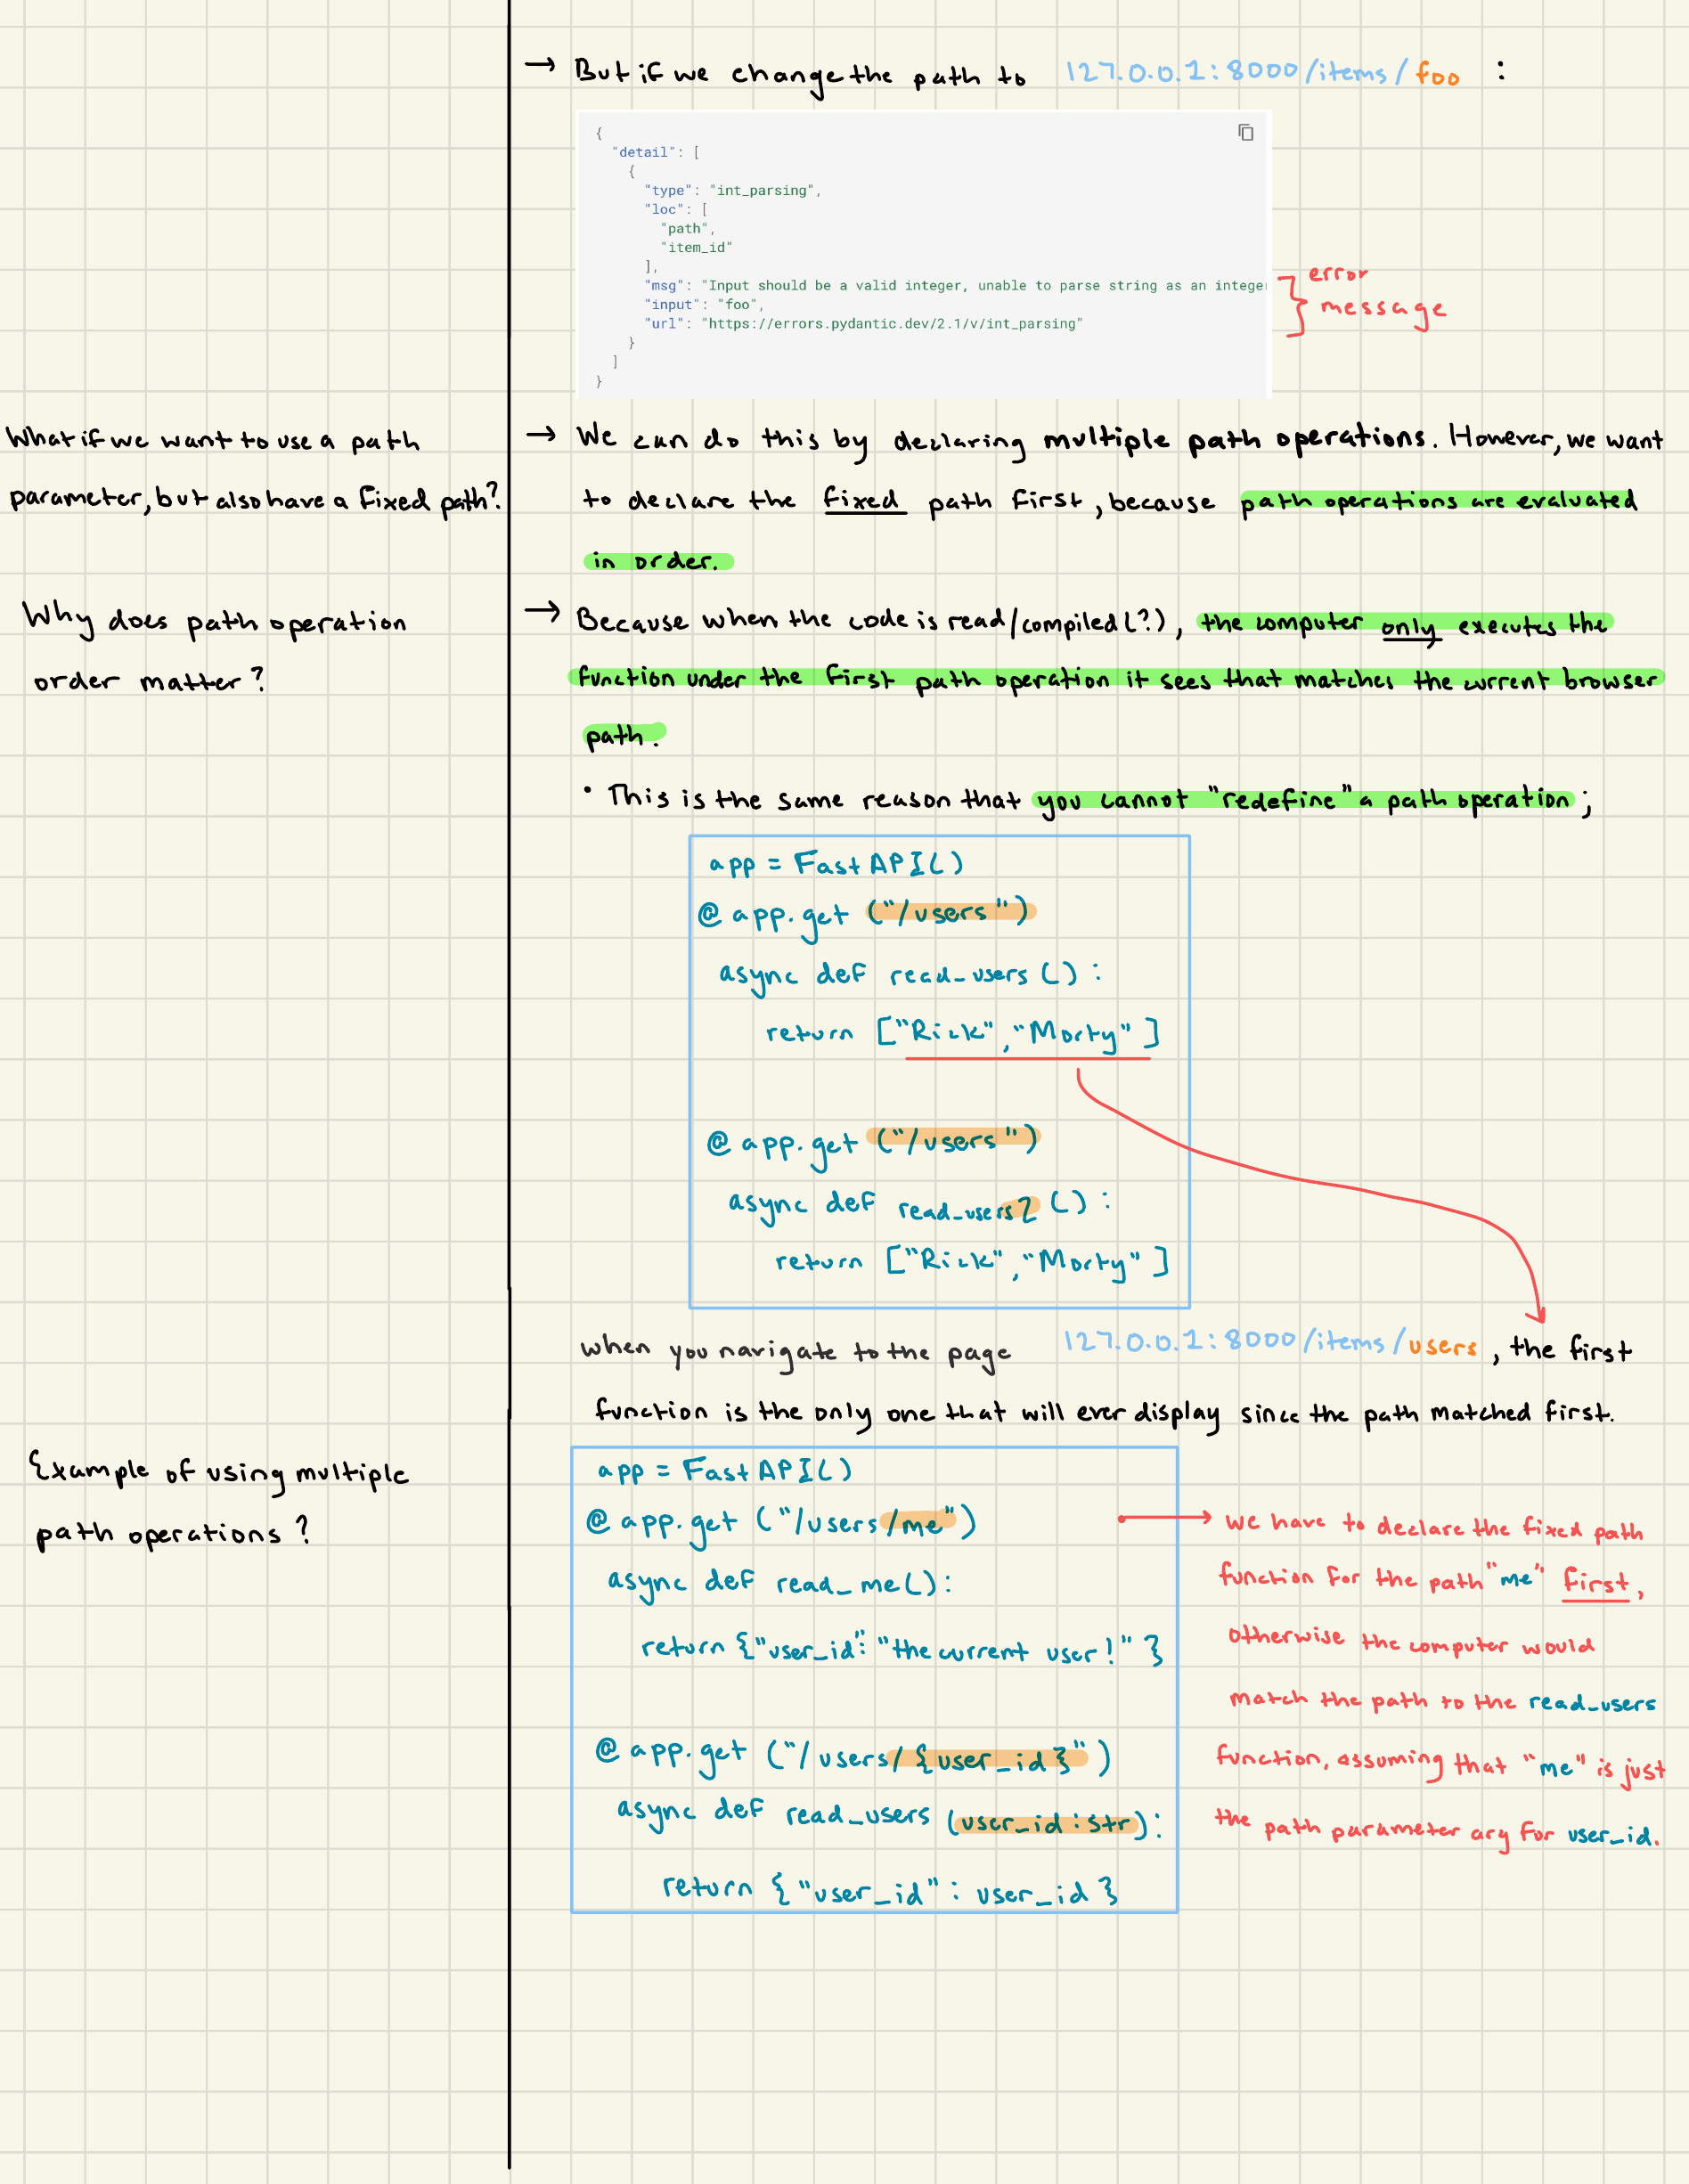 → But if we change the path to 127.0.0.1:8000/items/foo :
{
"detail": [
{
"type": "int_parsing",
"loc": [
"path",
"item_id"
],
"msg": "Input should be a valid integer, unable to parse string as an integer
"input": "foo",
"url": "https://errors.pydantic.dev/2.1/v/int_parsing"
}
]
}
error
message
What if we want to use a path
parameter, but also have a fixed path?
→ We can do this by declaring multiple path operations. However, we want
to declare the fixed path first, because path operations are evaluated
in order.
Why does path operation
order matter?
→ Because when the code is read/compiled(?), the computer only executes the
function under the first path operation it sees that matches the current browser
path.
• This is the same reason that you cannot "redefine" a path operation;
app = FastAPI()
@app.get ("/users")
async def read_users():
return ["Rick", "Morty"]
@app.get ("/users")
async def read_users2():
return ["Rick", "Morty"]
when you navigate to the page 127.0.0.1:8000/items/users, the first
function is the only one that will ever display since the path matched first.
Example of using multiple
path operations?
app = FastAPI()
@app.get ("/users/me")
async def read_me():
return {"user_id": "the current user!"}
@app.get ("/users/{user_id}")
async def read_users (user_id:str):
return {"user_id": user_id}
→ we have to declare the fixed path
function for the path "me" first,
otherwise the computer would
match the path to the read_users
function, assuming that "me" is just
the path parameter arg for user_id.